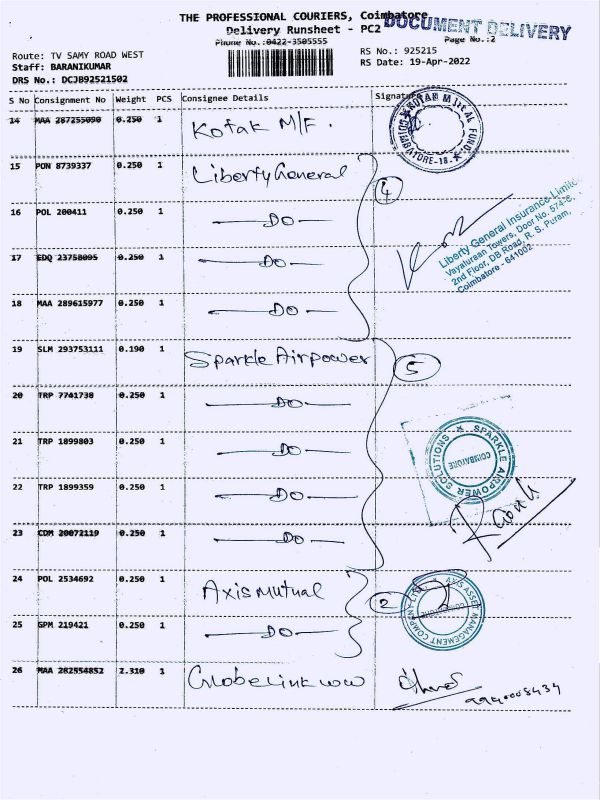 THE PROFESSIONAL COURIERS, Coimbatore
DOCUMENT DELIVERY
Delivery Runsheet - PC2
Phone No.:0422-3505555
Page No.:2
Route: TV SAMY ROAD WEST
RS No.: 925215
Staff: BARANIKUMAR
RS Date: 19-Apr-2022
DRS No.: DCJB92521502
S No Consignment No Weight PCS Consignee Details Signature
14 MAA 287255090 0.250 1 Kotak M/F.
KOTAK MUTUAL FUND COIMBATORE-18.
15 PON 8739337 0.250 1 Liberty General
4
16 POL 200411 0.250 1 DO
Liberty General Insurance Limited
2nd Floor, DB Road, R. S. Puram,
Coimbatore - 641002
17 EDQ 23758095 0.250 1 DO
18 MAA 289615977 0.250 1 DO
19 SLM 293753111 0.190 1 Sparkle Airpower
5
20 TRP 7741738 0.250 1 DO
21 TRP 1899803 0.250 1 DO
SPARKLE AIRPOWER SOLUTIONS COIMBATORE
22 TRP 1899359 0.250 1 DO
23 COM 20072119 0.250 1 DO
24 POL 2534692 0.250 1 Axis Mutual
2
AXIS ASSET MANAGEMENT COMPANY LTD COIMBATORE
25 GPM 219421 0.250 1 DO
26 MAA 282554852 2.310 1 Globelink ww
9940008434